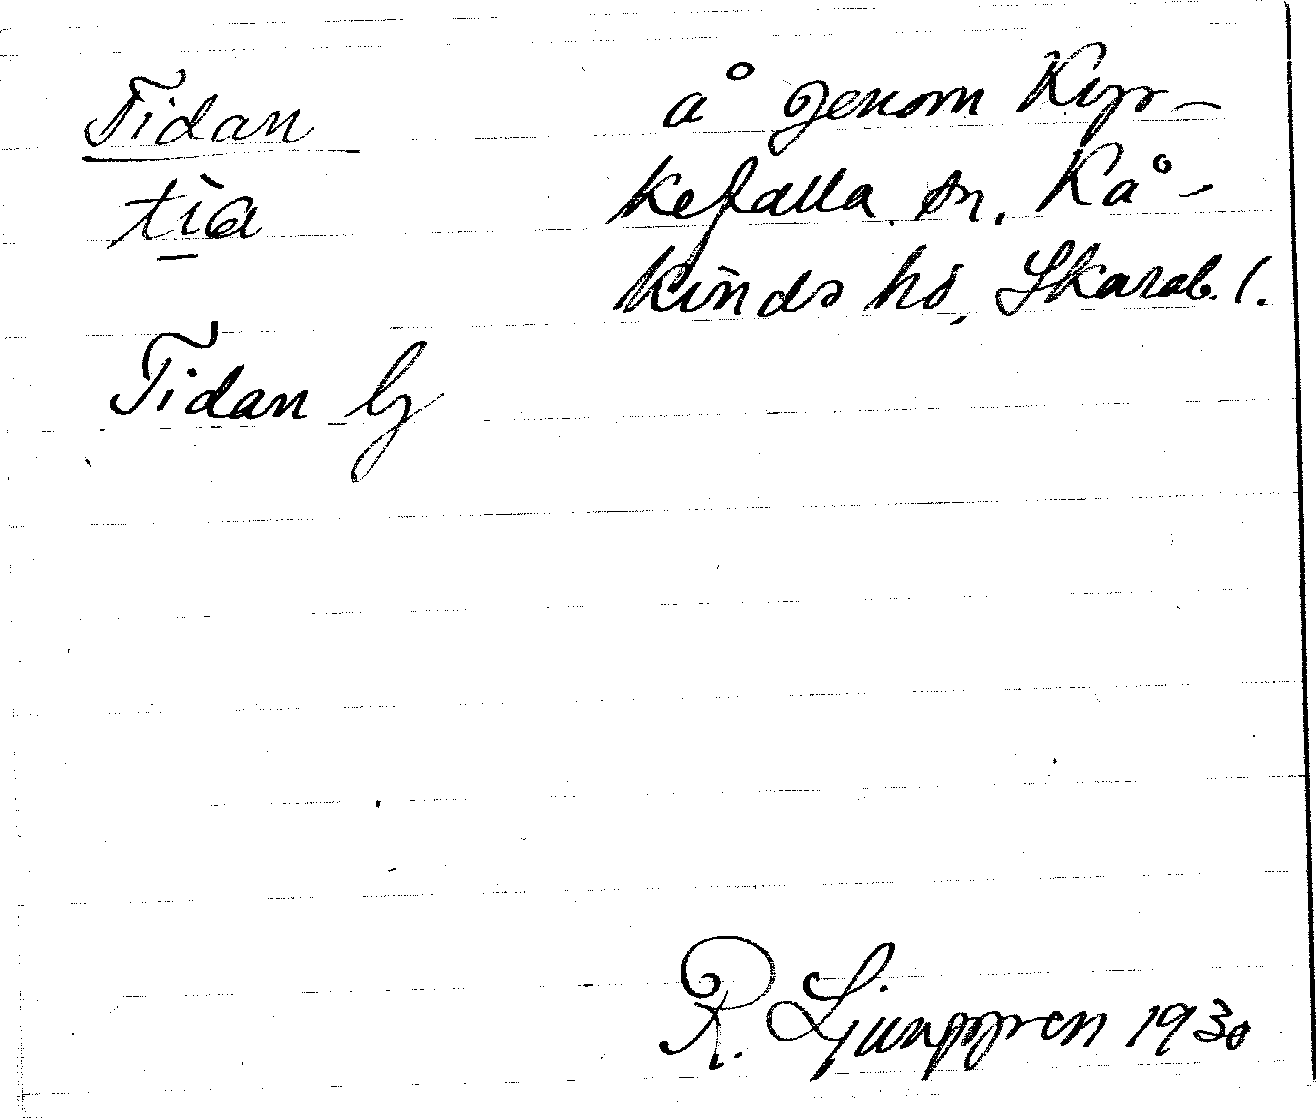 Tidan
tìa
Tidan
å genom Kyr-
kefalla sn. Kå-
kinds hd, Skarab. l.
R. Ljunggren 1930